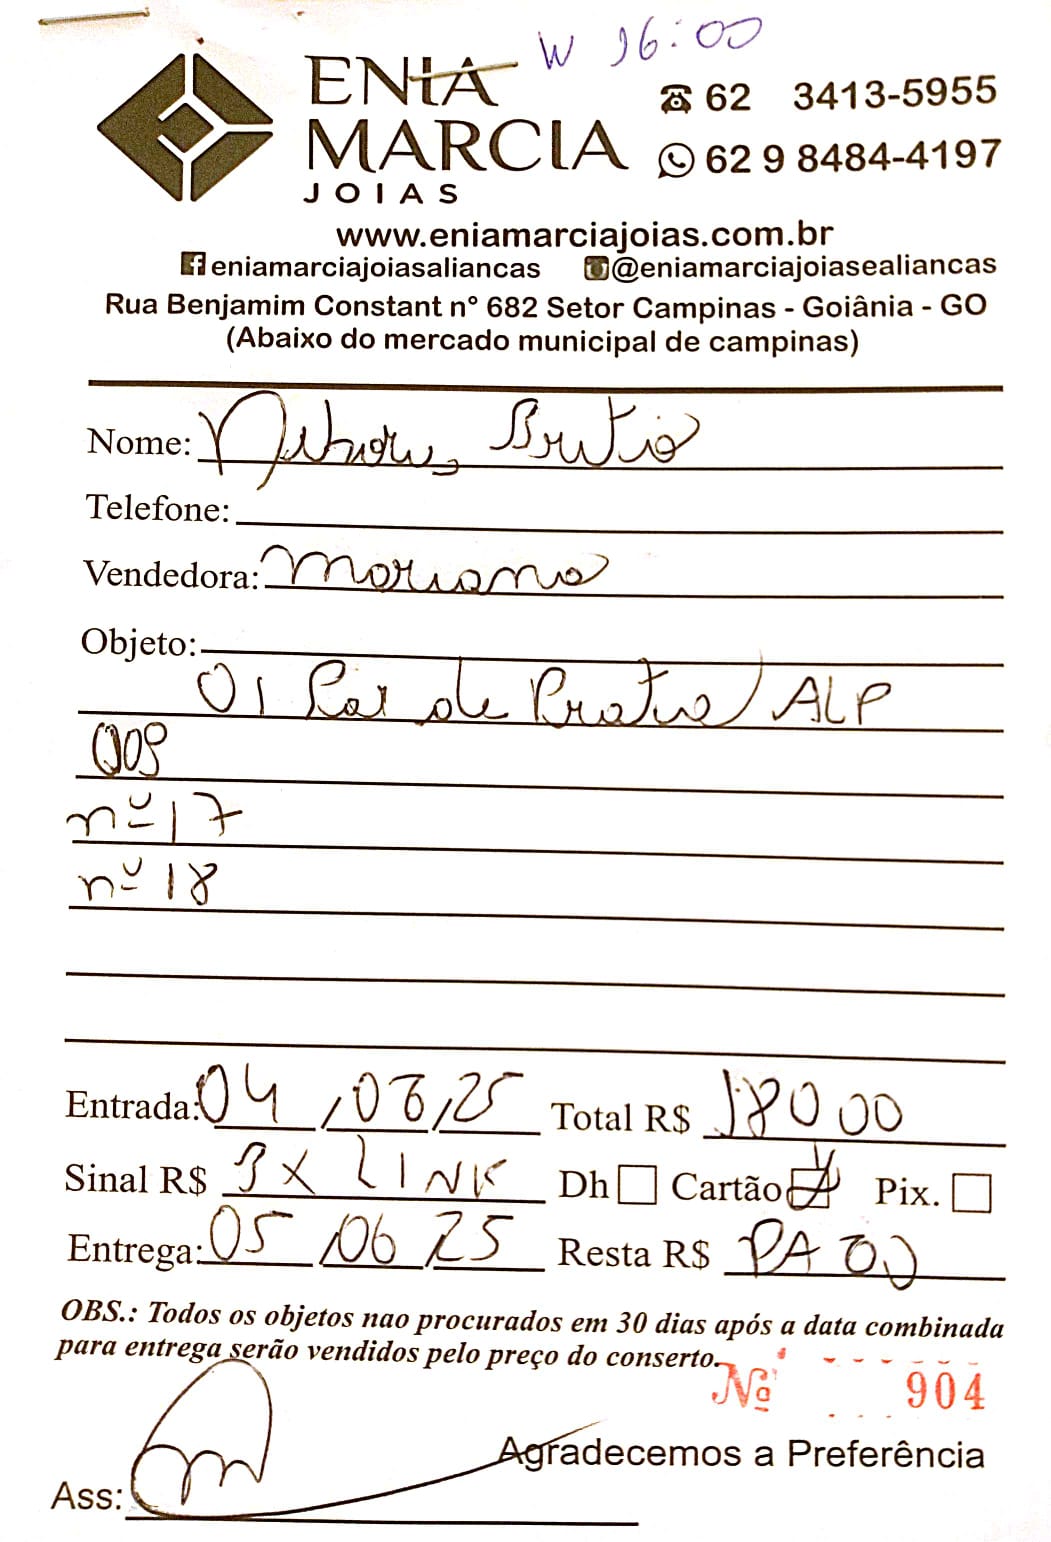 W 16:00
ENIA
MARCIA
JOIAS
62 3413-5955
62 9 8484-4197
www.eniamarciajoias.com.br
eniamarciajoiasaliancas @eniamarciajoiasealiancas
Rua Benjamim Constant nº 682 Setor Campinas - Goiânia - GO
(Abaixo do mercado municipal de campinas)
Nome:
Telefone:
Vendedora: Mariana
Objeto:
01 Par de Prata ALP
009
nº 17
nº 18
Entrada: 04/06/25 Total R$ 180 00
Sinal R$ 3X LINK Dh Cartão Pix.
Entrega: 05/06/25 Resta R$
OBS.: Todos os objetos nao procurados em 30 dias após a data combinada
para entrega serão vendidos pelo preço do conserto.
Nº 904
Agradecemos a Preferência
Ass: